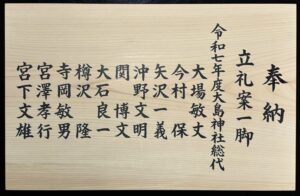 奉納
立礼案一脚
令和七年度大島神社総代
大場敏丈
今村保
矢沢一義
沖野文明
関博文
大石良一
樽沢隆
寺岡敏男
宮澤孝行
宮下文雄